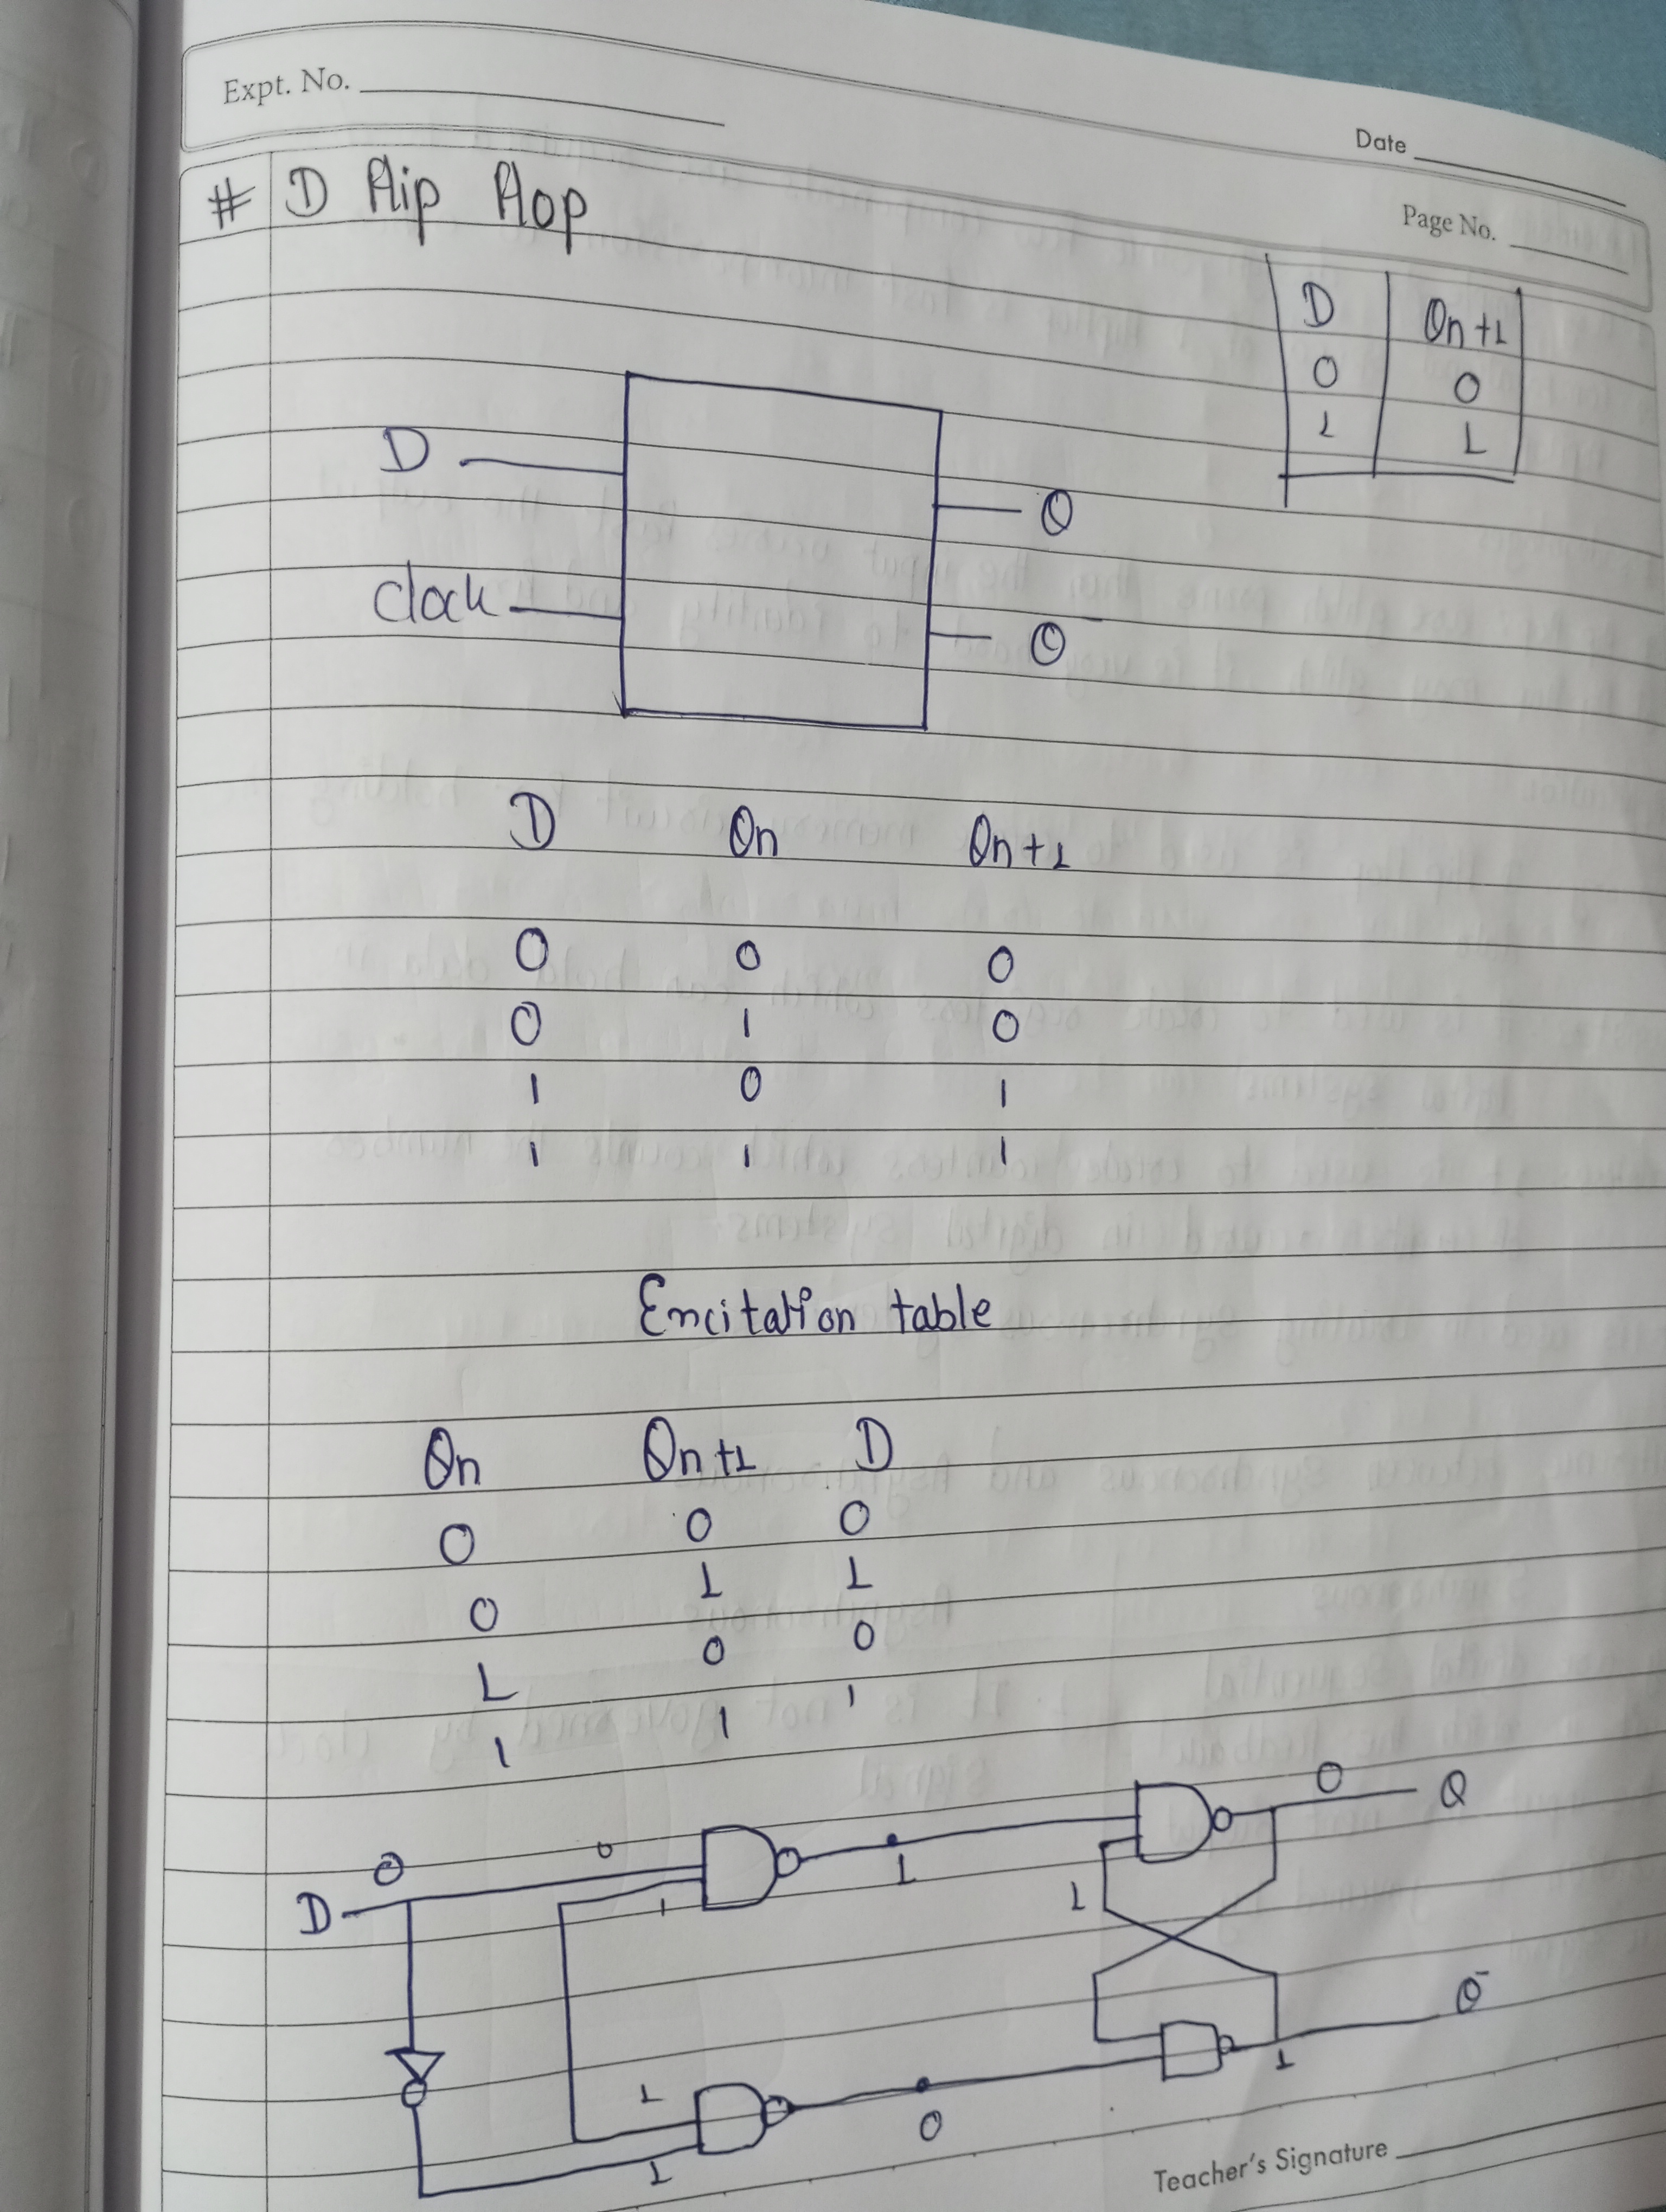 Expt. No.
Date
Page No.
# D flip flop
D Qn+1
0 0
1 1
D
Q
Clock
Q̅
D Qn Qn+1
0 0 0
0 1 0
1 0 1
1 1 1
Encitation table
Qn Qn+1 D
0 0 0
0 1 1
1 0 0
1 1 1
0 Q
0 0
1
D 1 1
Q̅
1
1
0
1
Teacher's Signature